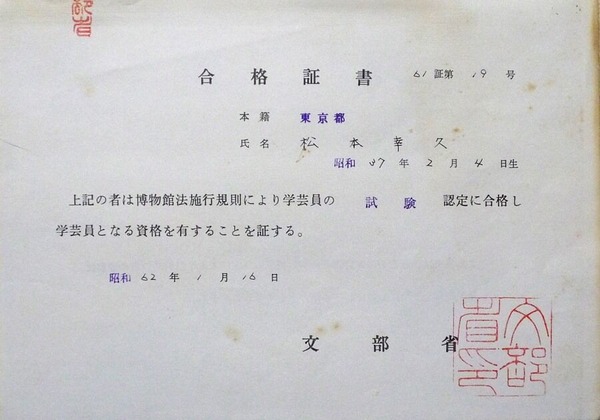 部省
合格証書 61証第19号
本籍 東京都
氏名 松本幸久
昭和37年2月4日生
上記の者は博物館法施行規則により学芸員の 試験 認定に合格し
学芸員となる資格を有することを証する。
昭和62年1月16日
文部省
文部省印